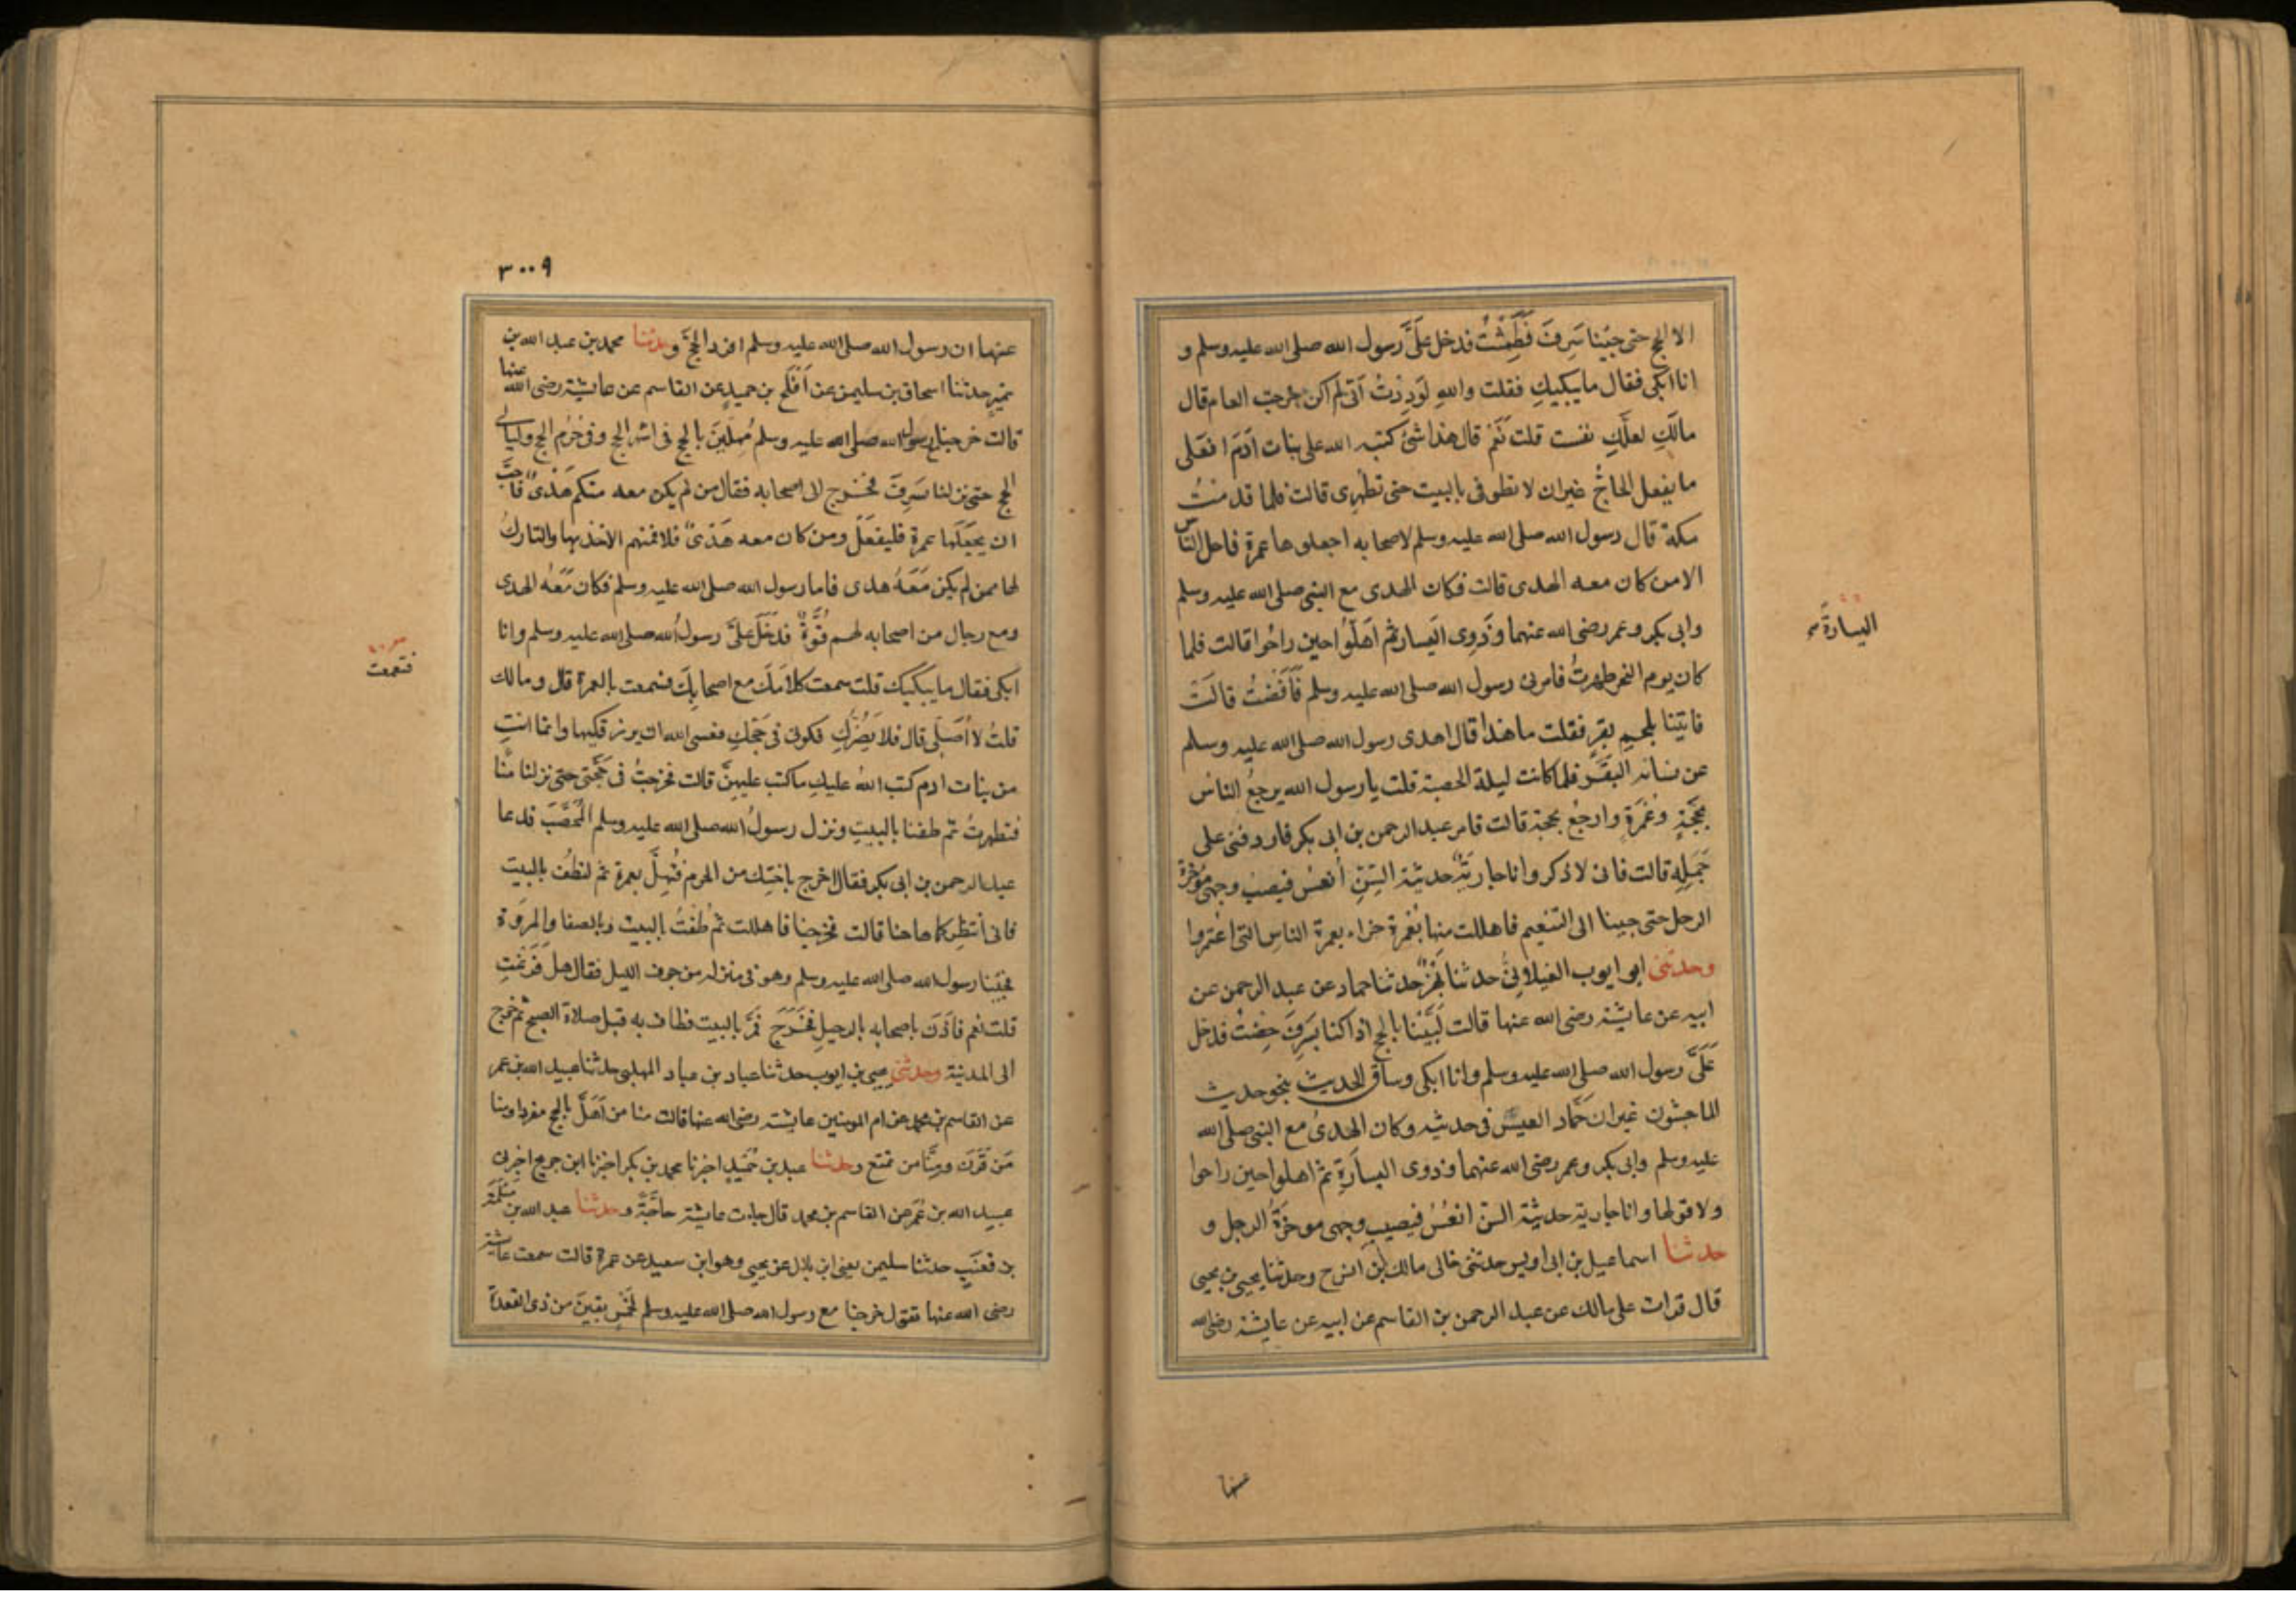 الا الحج حتى جئنا سَرِفَ فَطَمِثْتُ فدخل عَلَيَّ رسول الله صلى الله عليه وسلم و
انا ابكى فقال ما يبكيكِ فقلت واللهِ لَوَدِدْتُ اَنّى لم اكن خرجت العام قال
مالَكِ لعلَّكِ نفست قلت نَعَمْ قال هذا شئ كتبه الله على بنات آدَمَ افعَلى
ما يفعل الحاجُّ غير ان لا تطوفى بالبيت حتى تطهرى قالت فلما قدمْتُ
مكة قال رسول الله صلى الله عليه وسلم لاصحابه اجعلوها عمرة فاحل الناس
الا من كان معه الهدى قالت فكان الهدى مع النبى صلى الله عليه وسلم
وابى بكر وعمر رضى الله عنهما وذَوِى اليَسار ثم اَهَلُّوا حين راحُوا قالت فلما
كان يوم النحر طهرتُ فامرنى رسول الله صلى الله عليه وسلم فَاَفَضْتُ قالَتْ
فاتينا بلحمِ بقرٍ فقلت ما هذا قال اهدى رسول الله صلى الله عليه وسلم
عن نسائه البقَرَ فلما كانت ليلة الحصبة قلت يا رسول الله يرجعُ الناسُ
بحَجَّةٍ وعُمْرَةٍ وارجعُ بحجة قالت فامر عبد الرحمن بن ابى بكر فاردفنى على
جَمَلِهِ قالت فانى لاذكر وانا جاريَةٌ حديثة السِّنِّ اَنعُسُ فيصيب وجهى مؤخرة
الرحل حتى جينا الى التنعيم فاهللت منها بعُمْرة جزاء بعمرة الناسِ التى اعتَمَروا
وحدثنى ابو ايوب الغيلانِىُّ حدثنا بَهْزٌ حدثنا حماد عن عبد الرحمن عن
ابيه عن عايشة رضى الله عنها قالت لَبَّيْنا بالحج اذا كنا بسَرِفَ حِضتُ فدخل
عَلَىَّ رسول الله صلى الله عليه وسلم وانا ابكى وساق الحديث بنحو حديث
الماجشون غير ان حَمَّاد اليس فى حديثه وكان الهدىُ مع النبى صلى الله
عليه وسلم وابى بكر وعمر رضى الله عنهما وذوى اليسارَةِ ثم اهلوا حين راحوا
ولا قولها وانا جارية حديثة السن انعُسُ فيصيب وجهى موخرَةُ الرحل و
حدثنا اسماعيل بن ابى اويس حدثنى خالى مالك بن انس ح وحدثنا يحيى بن يحيى
قال قرات على مالك عن عبد الرحمن بن القاسم عن ابيه عن عايشة رضى الله
اليسارة
عنها
٣٠٠٩
عنها ان رسول الله صلى الله عليه وسلم افرد الحجَّ وحدثنا محمد بن عبد الله بن
نميرٍ حدثنا اسحاق بن سليمن عن اَفْلَح بن حميدٍ عن القاسم عن عايشة رضى الله عنها
قالت خرجنا مع رسول الله صلى الله عليه وسلم مُهِلّينَ بالحج فى اشهر الحج وفى حُرُم الحج وليالى
الحج حتى نزلنا بسَرِفَ فخرج الى اصحابه فقال من لم يكن معه منكم هَدْىٌ فاَحَبَّ
ان يجعَلَها عمرة فليفعَلْ ومن كان معه هَدْىٌ فلا فمنهم الآخذ بها والتاركُ
لها ممن لم يكن مَعَهُ هدى فاما رسول الله صلى الله عليه وسلم فكان مَعَهُ الهدى
ومع رجال من اصحابه لهم قُوَّةٌ فدَخَلَ عَلَىَّ رسولُ الله صلى الله عليه وسلم وانا
ابكى فقال ما يبكيك قلت سمعت كلاَمَكَ مع اصحابِكَ فسمعت بالعمرة قال ومالك
قلتُ لا اُصَلّى قال فلا يَضُرُّكِ فكونى فى حَجّكِ فعسى الله ان يرزقكيها وانما انتِ
من بنات ادم كتب اللهُ عليكِ ما كتب عليهِنَّ قالت فخرجتُ فى حَجَّتى حتى نزلنا مِنًا
فتطهرتُ ثم طفنا بالبيتِ ونزل رسولُ الله صلى الله عليه وسلم المُحَصَّبَ فدعا
عبد الرحمن بن ابى بكر فقال اخرج باختِك من الحرم فَتُهِلَّ بعمرة ثم لتطُف بالبيت
فانى انتظِركما هاهنا قالت فخرجنا فاهللت ثم طُفْتُ بالبيت وبالصفا والمَروَة
فجئنا رسول الله صلى الله عليه وسلم وهو فى منزله من جوف الليل فقال هل فَرَغتِ
قلت نعم فآذَنَ باصحابه بالرحيلِ فخَرَجَ فمَرَّ بالبيت فطاف به قبل صلاة الصبح ثم خرج
الى المدينة وحدثنى يحيى بن ايوب حدثنا عباد بن عباد المهلبى حدثنا عبيد الله بن عمر
عن القاسم بن محمد عن ام المومنين عايشة رضى الله عنها قالت منا من اَهَلَّ بالحج مفردا ومنا
مَن قَرَنَ ومِنَّا من تمتع وحدثنا عبد بن حُمَيدٍ اخبرنا محمد بن بكر اخبرنا ابن جريج اخبرنى
عبيد الله بن عُمَرَ عن القاسم بن محمد قال جاءت عايشة حاجَّةً وحدثنا عبد الله بن مَسْلَمَةَ
بن قعنَبٍ حدثنا سليمن يعنى ابن بلال عن يحيى وهو ابن سعيد عن عمرة قالت سمعت عايشة
رضى الله عنها تقول خرجنا مع رسول الله صلى الله عليه وسلم لخَمْسٍ بقينَ من ذى القعدة
فتمتعت